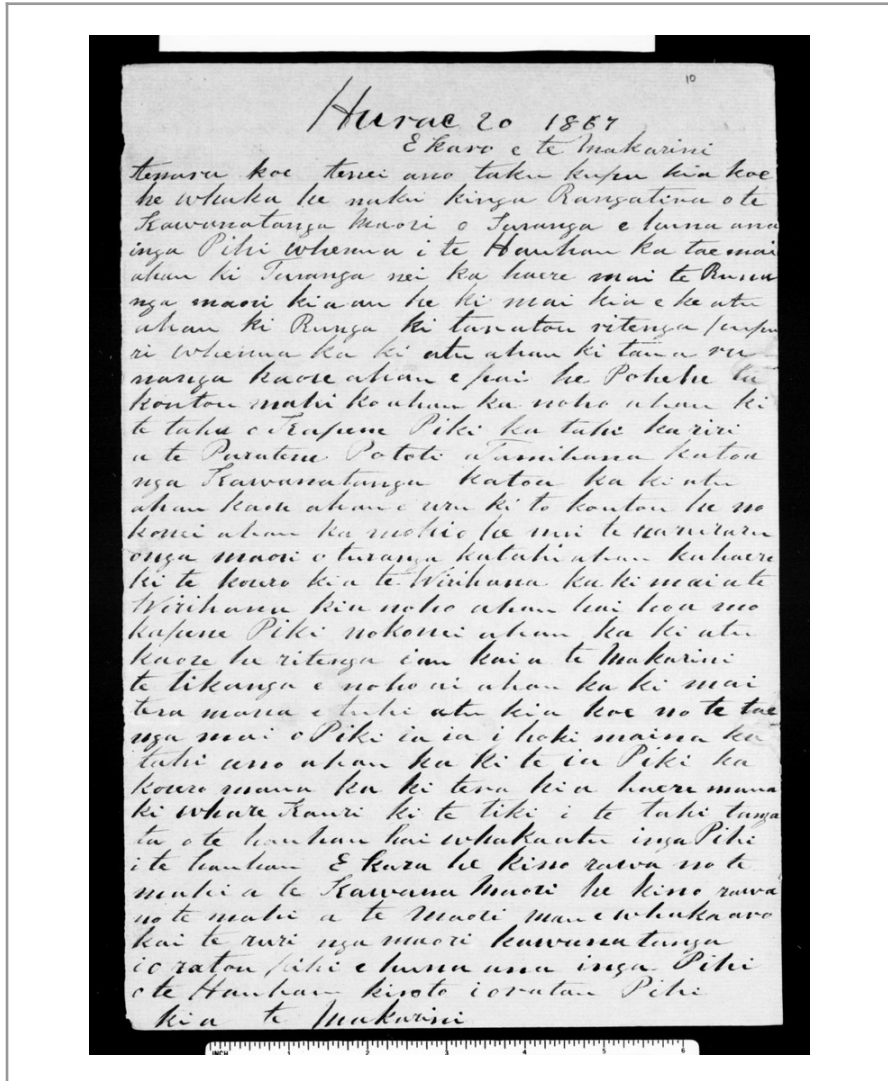 10
Hurae 20 1867
E karo e te Makarini
tenara koe tenei ano taku kupu kia koe
he whaka he naku kinga Rangatira o te
Kawanatanga Maori o Turanga e huna ana
inga Pihi whenua i te Hauhau ka tae mai
ahau ki Turanga nei ka haere mai te Runa
nga maori kia au he ki mai kia e ke atu
ahau ki Runga ki tanatou ritenga pupu
ri whenua ka ki atu ahau ki taua ru
nanga kaore ahau e pai he Pohehe ta
koutou mahi ko ahau ka noho ahau ki
te taha o Kapene Piki ka tahi ka riri
a te Paratene Pototi a Tamihana katoa
nga Kawanatanga katoa ka ki atu
ahau kaore ahau e uru ki to koutou he no
konei ahau ka mohio he nui te raruraru
onga maori o turanga katahi ahau ka haere
ki te kouro kia te Wirihana ka ki mai a te
Wirihana kia noho ahau hai hoa mo
kapene Piki nokonei ahau ka ki atu
kaore he ritenga i au kai a te Makarini
te tikanga e noho ai ahau ka ki mai
tera mana e tuhi atu kia koe no te tae
nga mai o Piki ia ia i hoki maina ka
tahi ano ahau ka ki te ia Piki ka
kouro mana ka ki tera kia haere mana
ki whare Kauri ki te tiki i te tahi tanga
ta o te hauhau hai whakaatu inga Pihi
i te hauhau E kara he kino rawa no te
mahi a te Kawana Maori he kino rawa
no te mahi a te Maori mau e whakaaro
kai te ruri nga maori kawanatanga
i o ratou pihi e huna ana inga Pihi
o te Hauhau kiroto i oratau Pihi
kia te Makarini
INCH 1 2 3 4 5 6